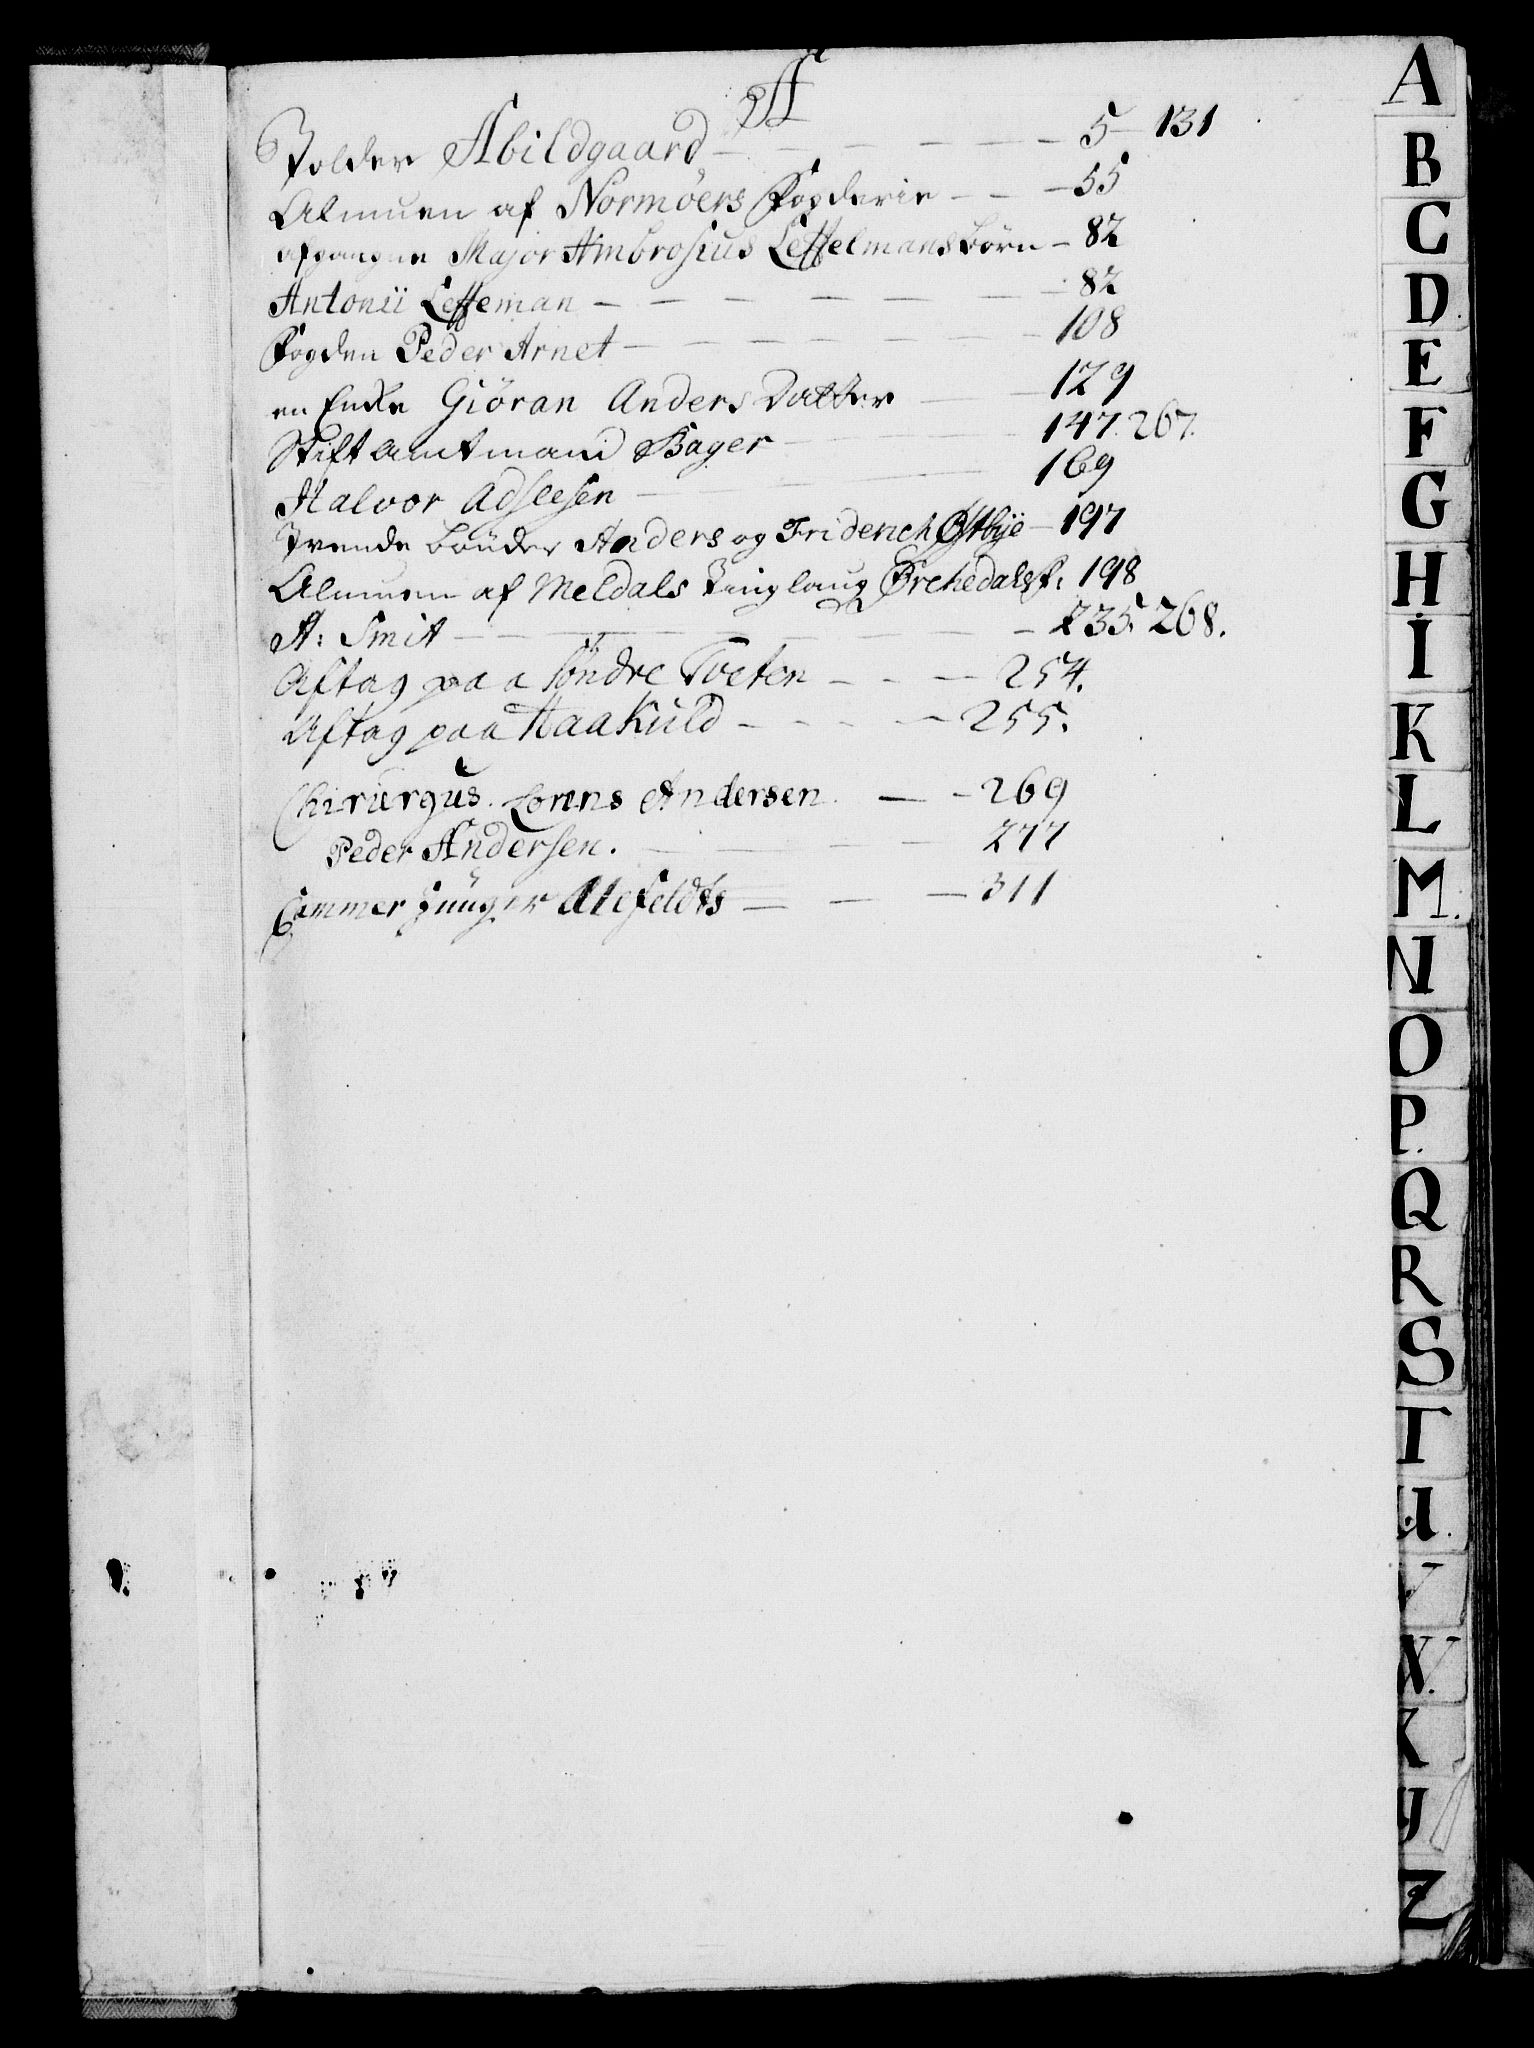 A
Tolder Abildgaard 5 131
Almuen af Normöers Fogderie 55
afgangne Major Ambrosius Leffelmans börn 82
Antonii Leffeman 82
Fogden Peder Arnet 108
en Enke Giöran Anders Datter 129
Stiftamtmand Bager 147. 267.
Halvor Adslesen 169
Tvende bönder Anders og Friderich Østbÿe 197
Almuen af Meldals Tinglaug Örchedals f: 198
A: Smit 235. 268.
Aftag paa Söndre Tveten 254.
Aftag paa Haakuld 255.
Chirurgus. Lorens Andersen. 269
Peder Andersen. 277
Cammer Junger Alefeldts 311
A
B
C
D.
E
F
G
H
I
K
L
M.
N
O
P.
Q
R
S
T
U.
V
X.
Y
Z